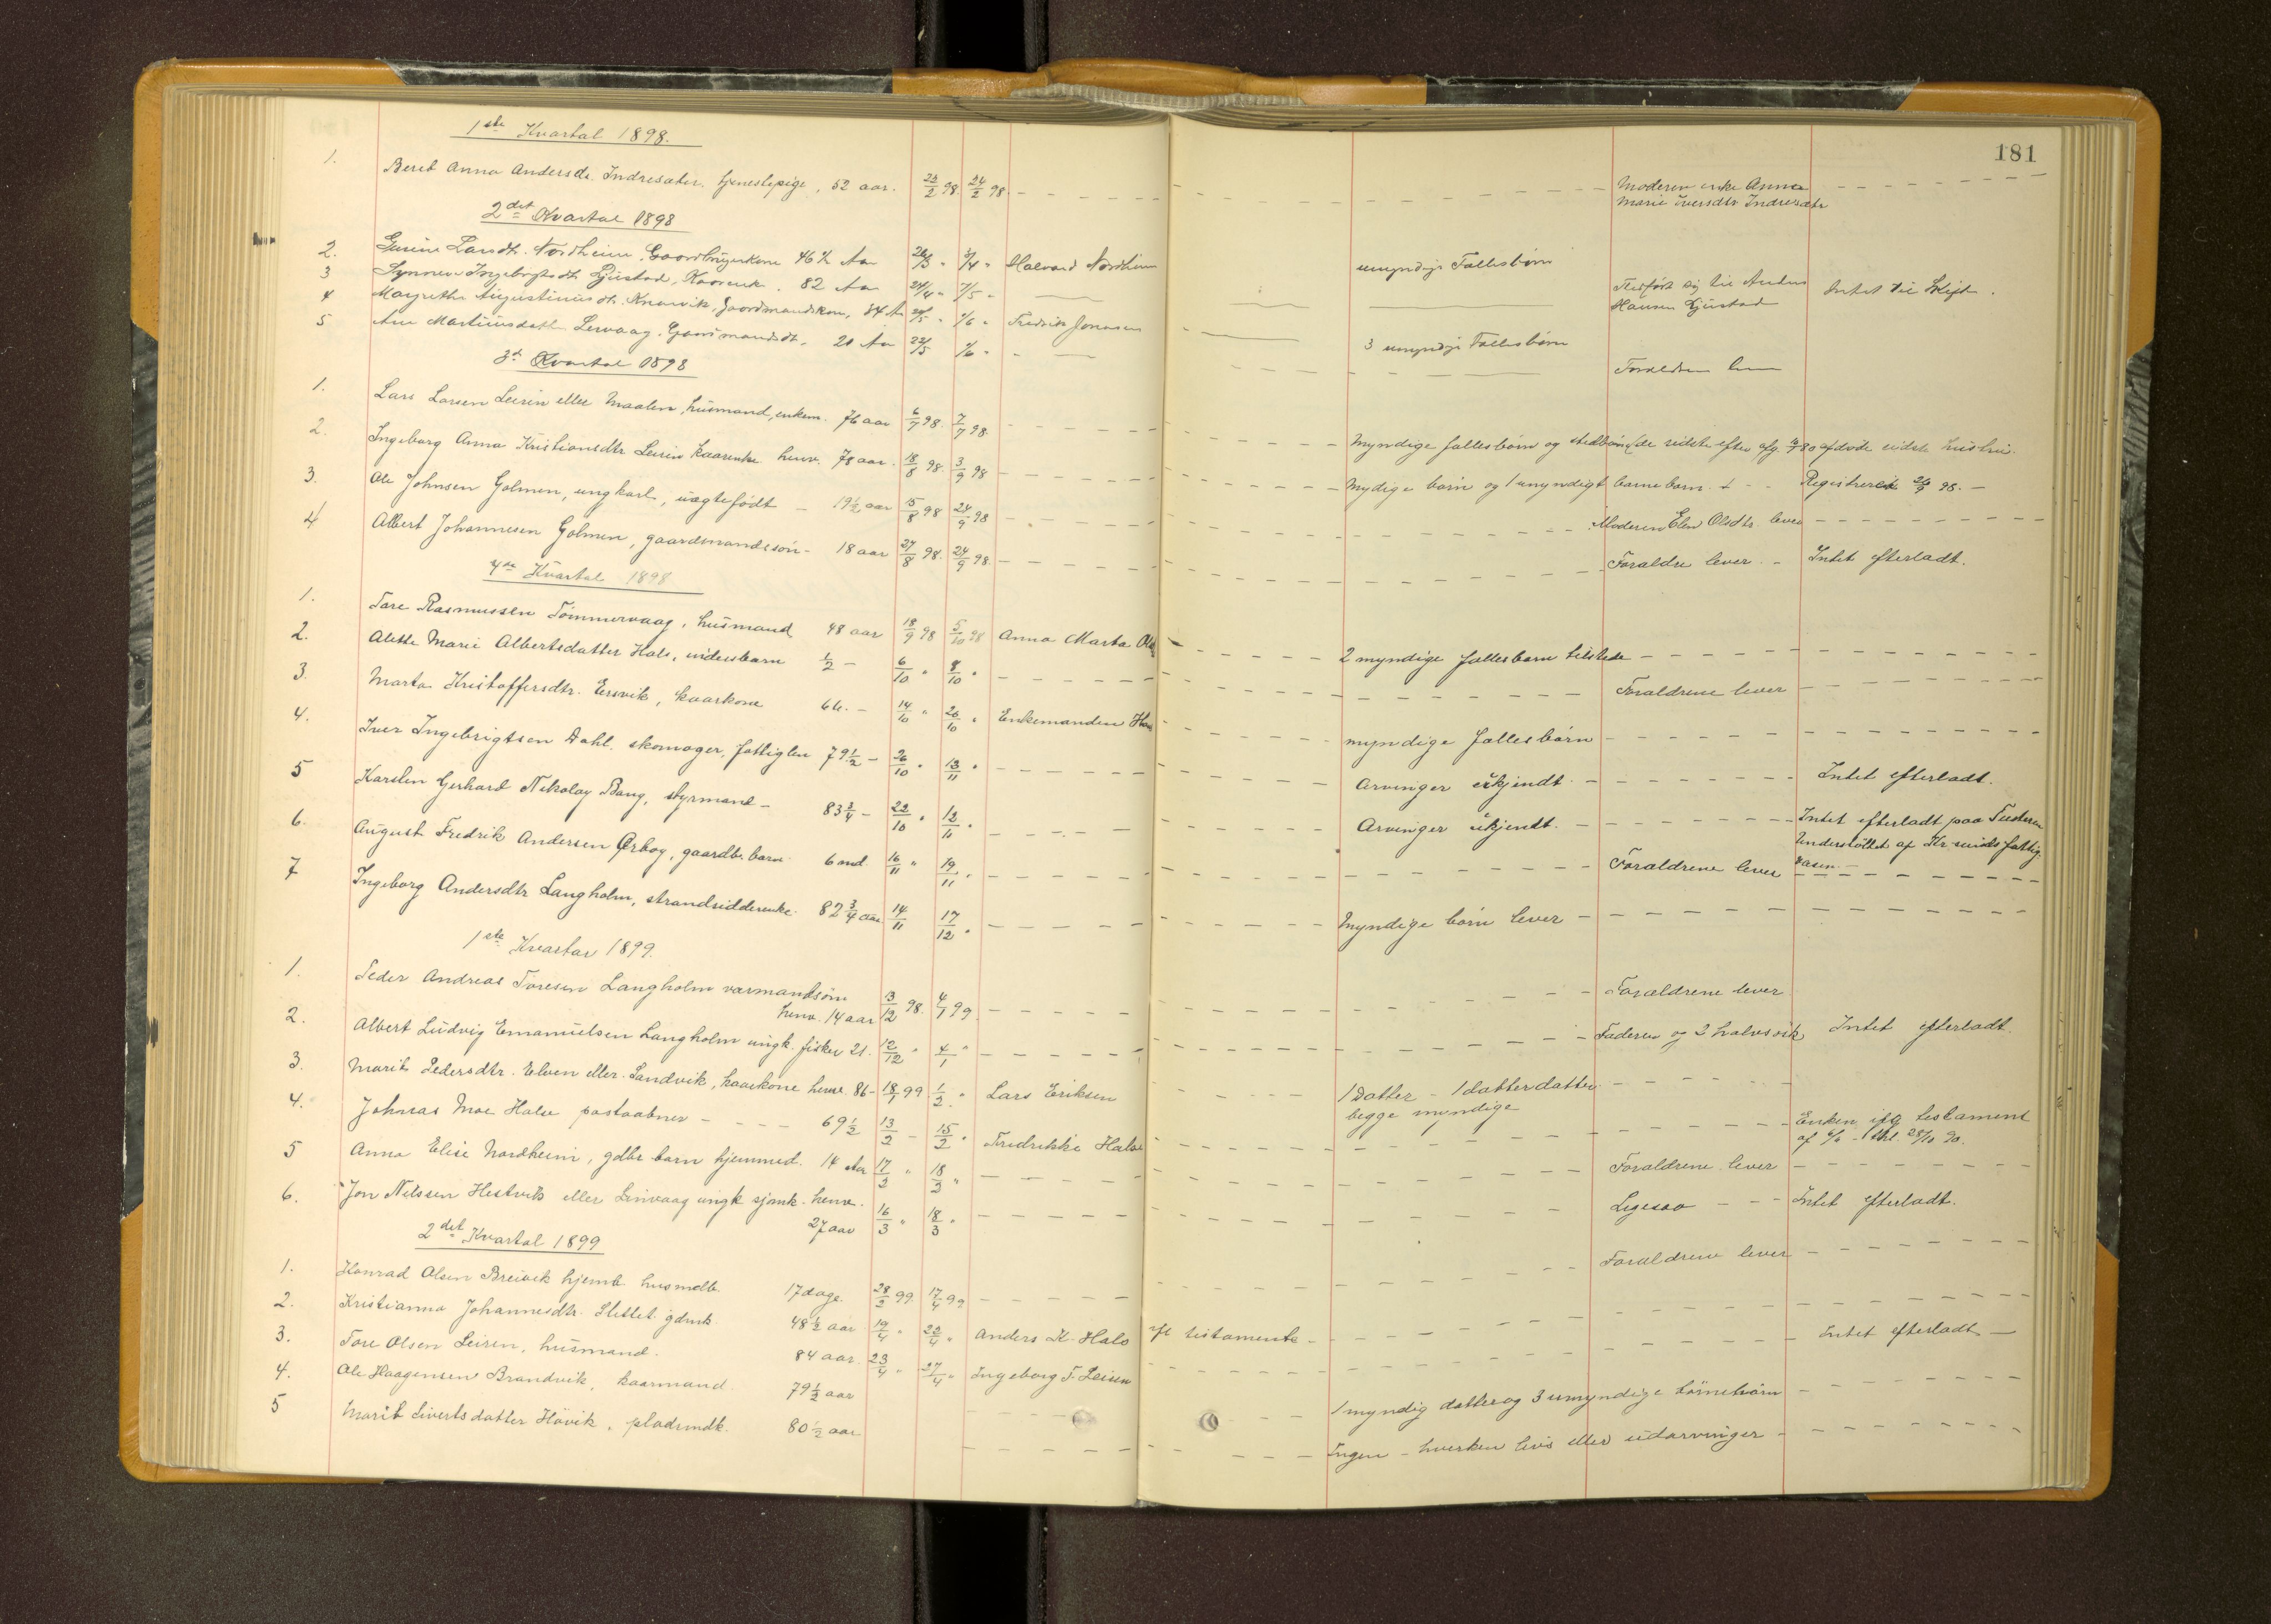 181
1ste Kvartal 1898.
1. Beret Anna Andersdr. Indresæter, tjenestepige, 52 aar. 23/2 98 24/2 98 Moderen enke Anna
Marie Iversdtr Indresætr
2det Kvartal 1898
2. Larsdtr. Nordheim, Gaardbrugerkone 46½ Aar 26/3 " 3/4 " Halvard Nordheim umyndige Fællesbørn
3 Synneve Ingebrigtsdtr Gjustad, Kaarenk. 82 Aar 24/4 " 7/5 " sig til Anders
Hansen Gjustad Intet til Skifte.
4 Margrethe Augustinusdtr. Knarvik, Gaardmandskone, 34 Aar " 1/6 " Fredrik Jonassen 3 umyndige Fællesbørn
5 Ane Martinusdatter Lervaag, Gaardmandsdtr. 21 Aar 22/5 1/6 " Forældrene
3die Kvartal 1898
1. Lars Larsen Leirin eller Maalen, husmand, enkem. 76 aar 6/7 98. 7/7 98. Myndige fællesbørn og stedbørn (de sidste efter afg. 80 afdøde sidste hustru.
2. Ingeborg Anna Kristiansdtr Leirin kaarenke henv. 78 aar. 18/8 98. 3/9 98 Mydige børn og 1 umyndigt barnebarn Registreret 26/9 98.
3. Ole Johnsen Golmen, ungkarl, uægtefødt 19½ aar 15/8 98 24/9 98 Moderen Elen Olsdtr. lever
4 Albert Johannesen Golmen, gaardmandssøn 18 aar 27/8 98. 24/9 98. Forældre lever Intet efterladt.
4de Kvartal 1898
1. Tore Rasmussen Tømmervaag, husmand 48 aar 18/9 98 5/10 98 Anna Marta 2 myndige fællesbarn tilstede
2. Alette Marie Albertsdatter Hals, indersbarn ½ 6/10 " 8/10 " Forældrene lever
3. Marta Kristoffersdtr. Ersvik, kaarkone 66. 14/10 " 26/10 " Enkemanden myndige fællesbørn
4. Iver Ingebrigtsen Dahl. skomager, fattiglem 79½ 26/10 " 13/11 " Arvinger ukjendt Intet efterladt.
5 Karsten Gerhard Nikolay Bang, styrmand 83¾ 22/10 " 12/11 " Arvinger ukjendt. Intet efterladt paa Tusteren
Understøttet af Kr.sunds fattig-
væsen.
6. August Fredrik Andersen Ørbog, gaardbr. barn 6 md 16/11 " 19/11 " Forældrene lever
7 Ingeborg Andersdtr Langholm, strandsidderenke 82¾ aar 14/11 17/12 " Myndige børn lever
1ste Kvartal 1899.
1. Peder Andreas Toresen Langholm vaarmandsøn
henv. 14 aar 13/12 98. 4/1 99 Forældrene lever
2. Albert Ludvig Emanuelsen Langholm ungk. fisker 21. 12/12 " 4/1 " Faderen og 2 halvsøsk Intet efterladt.
3. Marit Pedersdtr. Elven eller Sandvik, kaarkone henv. 86 18/1 99 1/2 " Lars Eriksen 1 datter - 1 datterdatter
begge myndige
4. Johnas Moe Halse postaabner 69½ 13/2 15/2 " Fredrikke Halse Enken ifg testament
af 6/6 28/10 90.
5 Anna Elise Nordheim, gdbr. barn hjemmed. 14 Aar 17/2 " 18/2 " Forældrene lever
6. Jon Nilssen Hestvik eller Linvaag ungk. sjømk. henv.
27 aar 16/3 " 18/3 " Ligesaa Intet efterladt.
2det Kvartal 1899
1. Konrad Olsen Breivik hjemb. husmdb. 17 dage 28/2 99 17/4 99 Forældrene lever
2. Kristianna Johannesdtr. Slettet gdmk. 48½ aar 19/4 " 22/4 " Anders K. Hals ifl testamente
3. Tore Olsen Leiren, husmand. 84 aar 23/4 " 27/4 " Ingeborg T. Leiren Intet efterladt
4. Ole Haagensen Brandvik, kaarmand 79½ aar 1 myndig datter og 3 umyndige børnebørn
5 Marit Sivertsdatter Høvik, pladsmdk. 80½ aar Ingen - hverken livs eller udarvinger